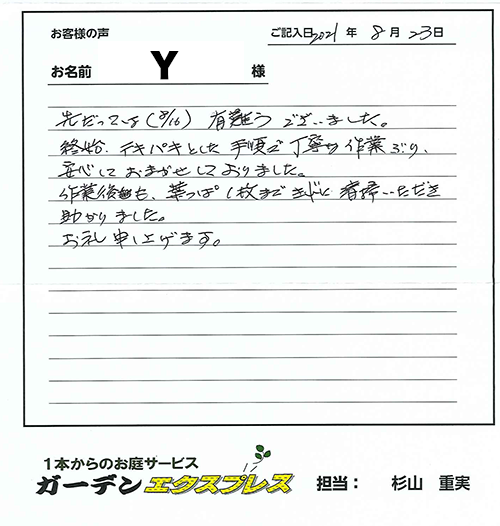 お客様の声
ご記入日 2021 年 8 月 23 日
お名前 Y 様
先だっては(8/16) 有難うございました。
終始、テキパキとした手順で丁寧な作業ぶり、
安心しておまかせしておりました。
作業後も、葉っぱ1枚まできれいに清掃いただき
助かりました。
お礼申し上げます。
1本からのお庭サービス
ガーデンエクスプレス 担当： 杉山 重実